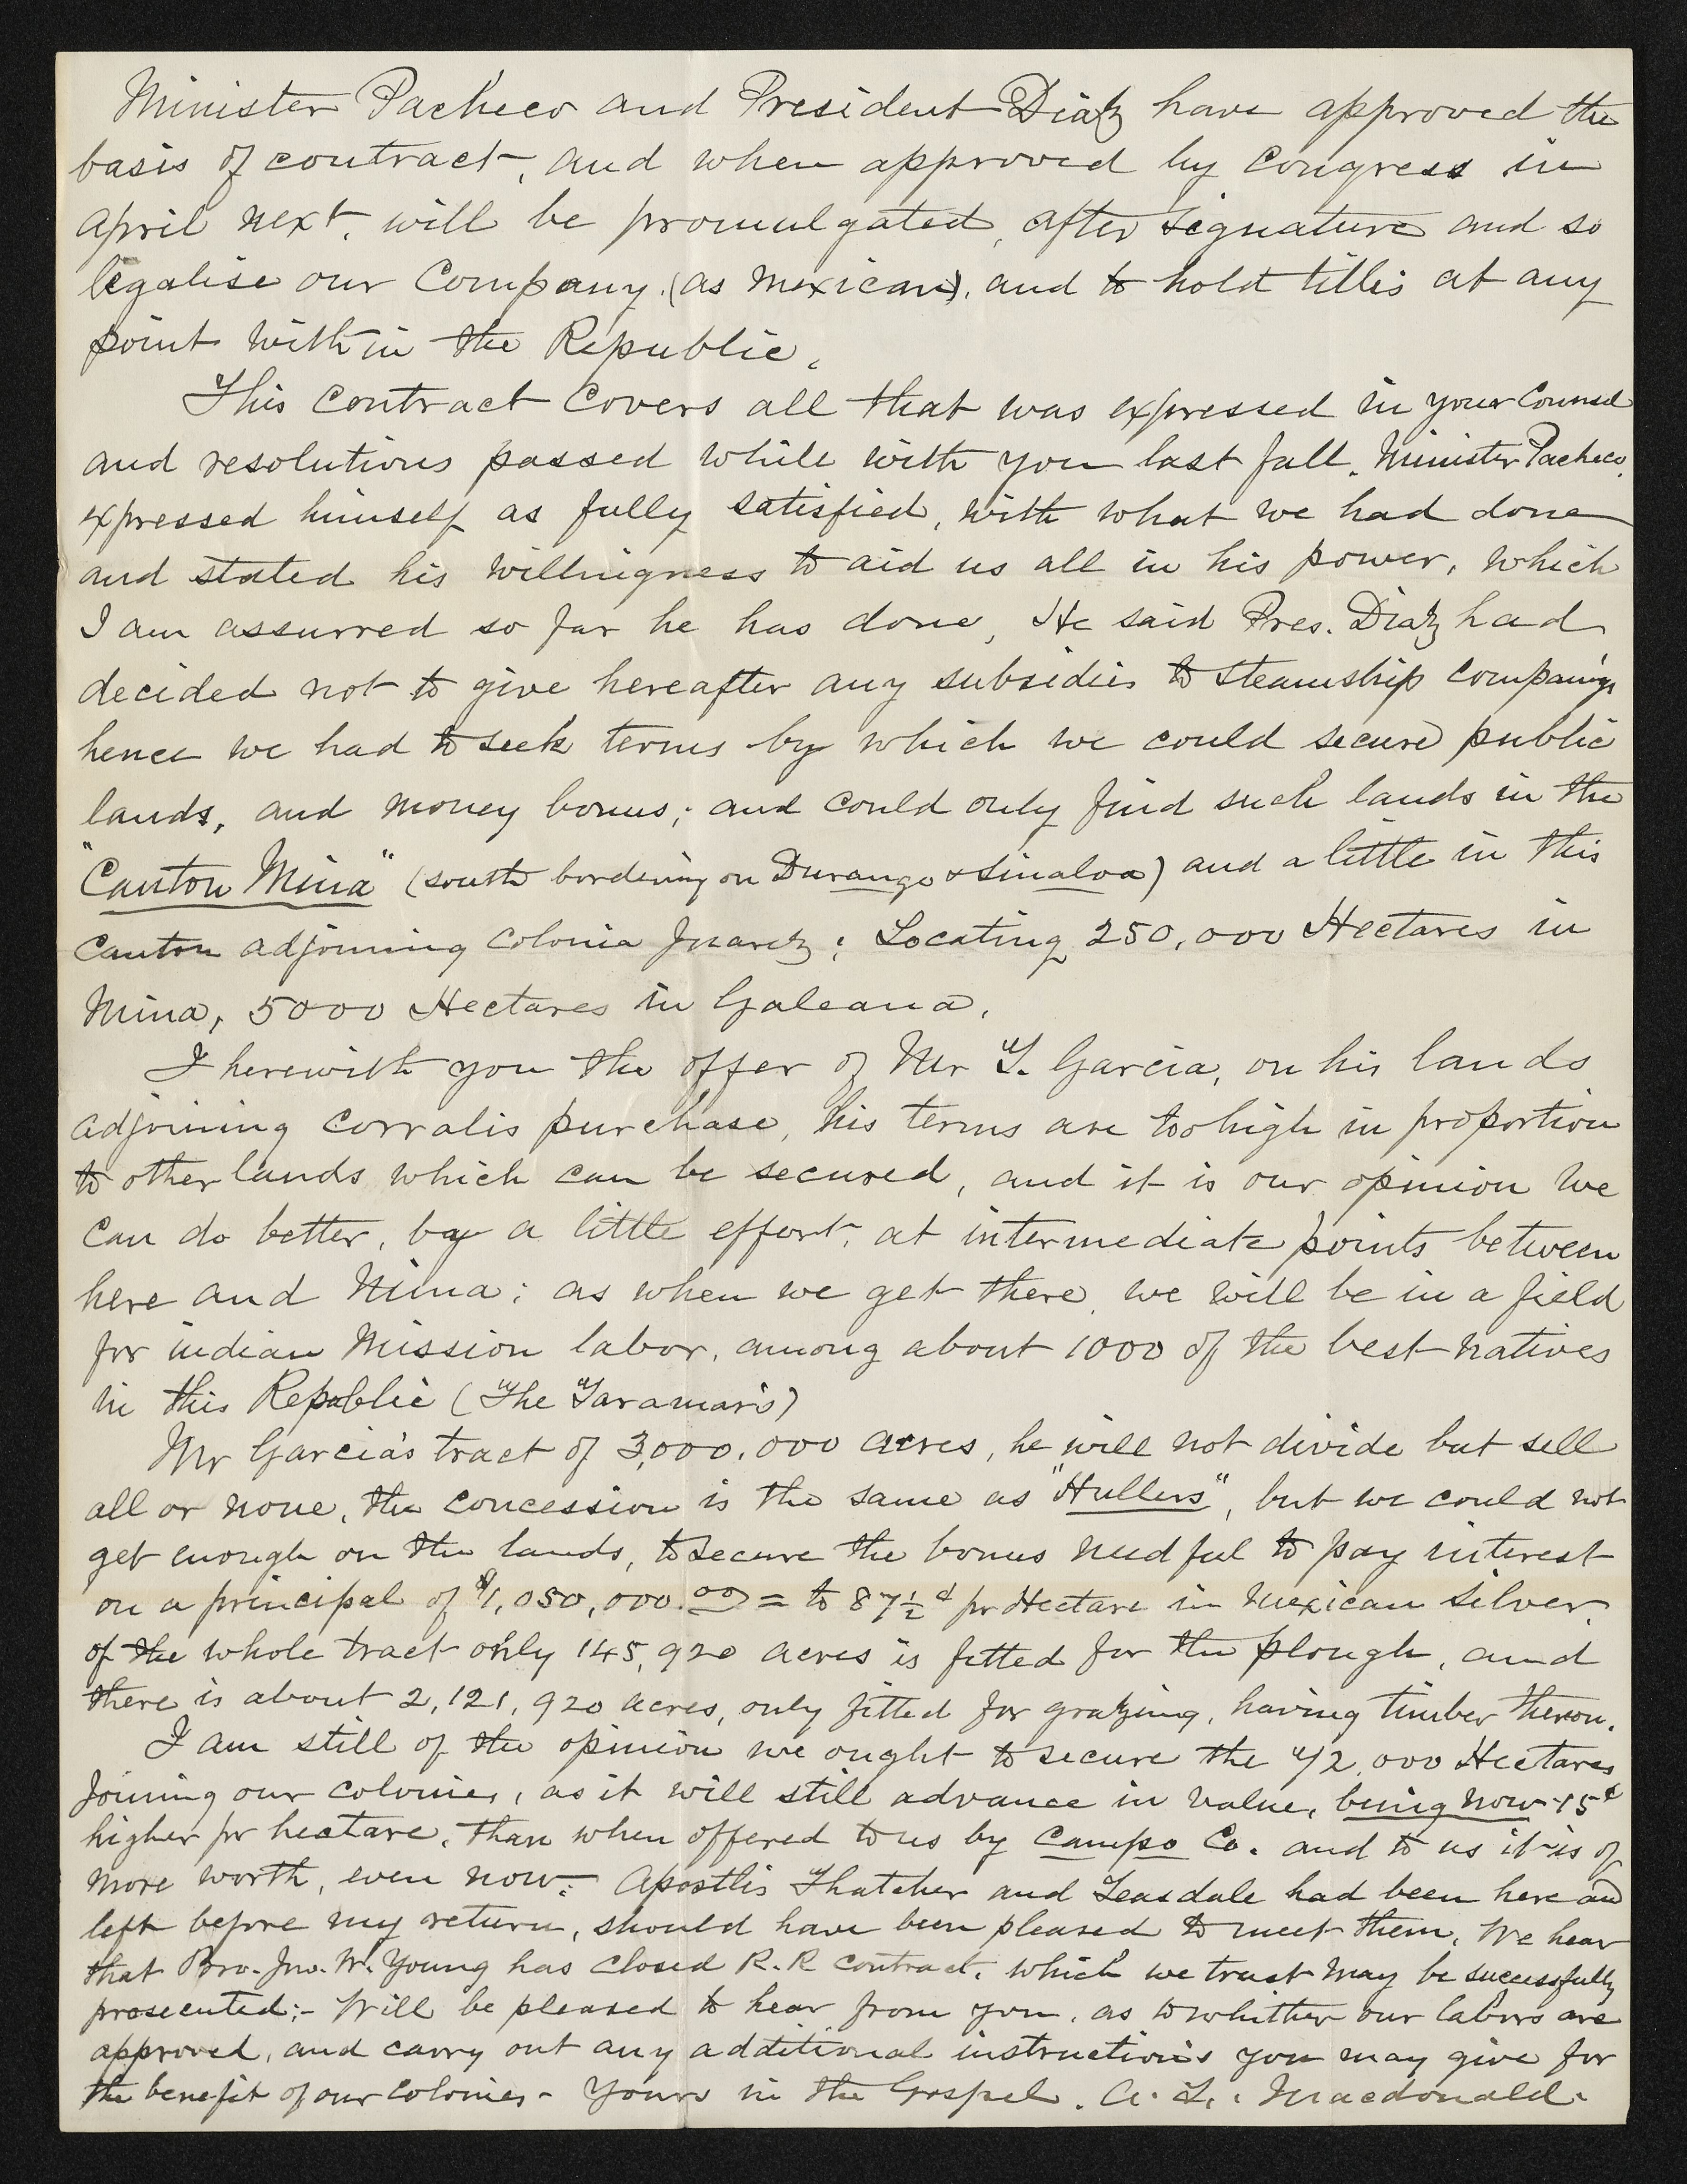 Minister Pacheco and President Diaz have approved the
basis of contract, and when approved by Congress in
April next, will be promulgated, after signature and so
legalise our Company, (as Mexican), and to hold titles at any
point within the Republic.
This contract covers all that was expressed in your Counsel
and resolutions passed while with you last fall. Minister Pacheco,
expressed himself as fully satisfied, with what we had done
and stated his willingness to aid us all in his power, which
I am assurred so far he has done, He said Pres. Diaz had
decided not to give hereafter any subsidies to steamship companys
hence we had to seek terms by which we could secure public
lands, and money bonus; and could only find such lands in the
"Canton Mina" (south bordering on Durango & Sinaloa) and a little in this
Canton adjoining Colonia Juarez; Locating 250,000 Hectares in
Mina, 5000 Hectares in Galeana.
I herewith you the offer of Mr T. Garcia, on his lands
adjoining Corralis purchase, his terms are too high in proportion
to other lands which can be secured, and it is our opinion we
can do better, by a little effort, at intermediate points between
here and Mina; as when we get there, we will be in a field
for indian Mission labor, among about 1000 of the best natives
in this Republic (The Taramaris)
Mr Garcia's tract of 3,000,000 acres, he will not divide but sell
all or none, the concession is the same as "Hullers", but we could not
get enough on the lands, to secure the bonus needful to pay interest
on a principal of $1,050,000.00 = to 87½ ¢ pr Hectare in Mexican silver.
of the whole tract only 145,920 acres is fitted for the plough, and
there is about 2,121,920 acres, only fitted for grazing, having timber theron.
I am still of the opinion we ought to secure the 42,000 Hectares
joining our colonies, as it will still advance in value, being now 15¢
higher pr hectare, than when offered to us by Campo Co. and to us it is of
more worth, even now: Apostles Thatcher and Teasdale had been here and
left before my return, should have been pleased to meet them. We hear
that Bro. Jno. W. Young has closed R. R contract, which we trust may be successfully
prosecuted:- Will be pleased to hear from you, as to whither our labors are
approved, and carry out any additional instructions you may give for
the benefit of our Colonies - Yours in the Gospel. A. F. Macdonald.